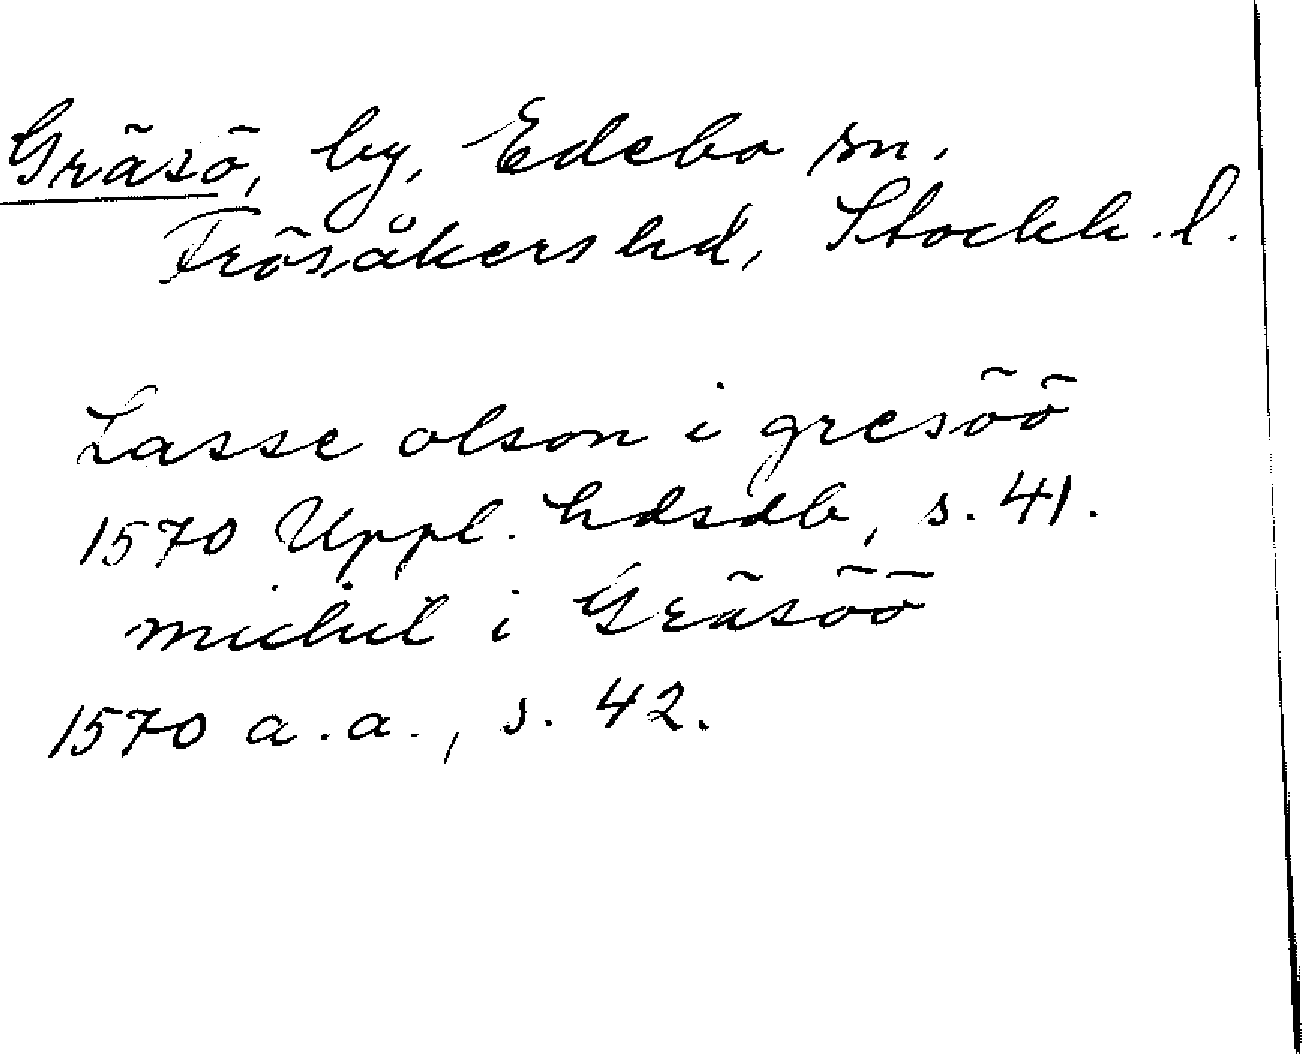 Gräsö, by, Edebo sn,
Frösåkers hd, Stockh. l.
Lasse olson i gresöö
1570 Uppl. hdsdb, s. 41.
michil i Gräsöö
1570 a.a., s. 42.